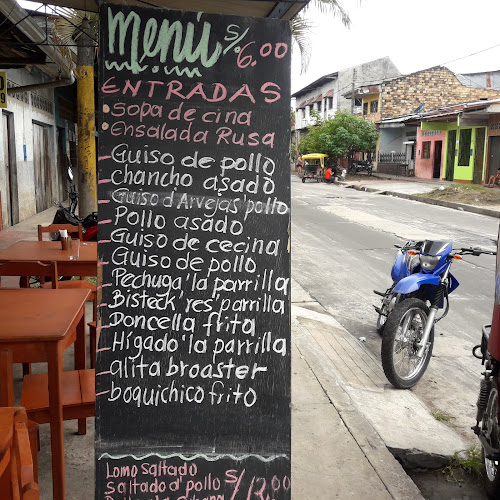 Menú S/. 6.00
ENTRADAS
Sopa de cina
Ensalada Rusa
Guiso de pollo
chancho asado
Guiso d'Arvejas pollo
Pollo asado
Guiso de cecina
Guiso de pollo
Pechuga 'la parrilla
Bisteck 'res' parrilla
Doncella frita
Hígado 'la parrilla
alita broaster
boquichico frito
Lomo saltado
saltado d' pollo S/12.00